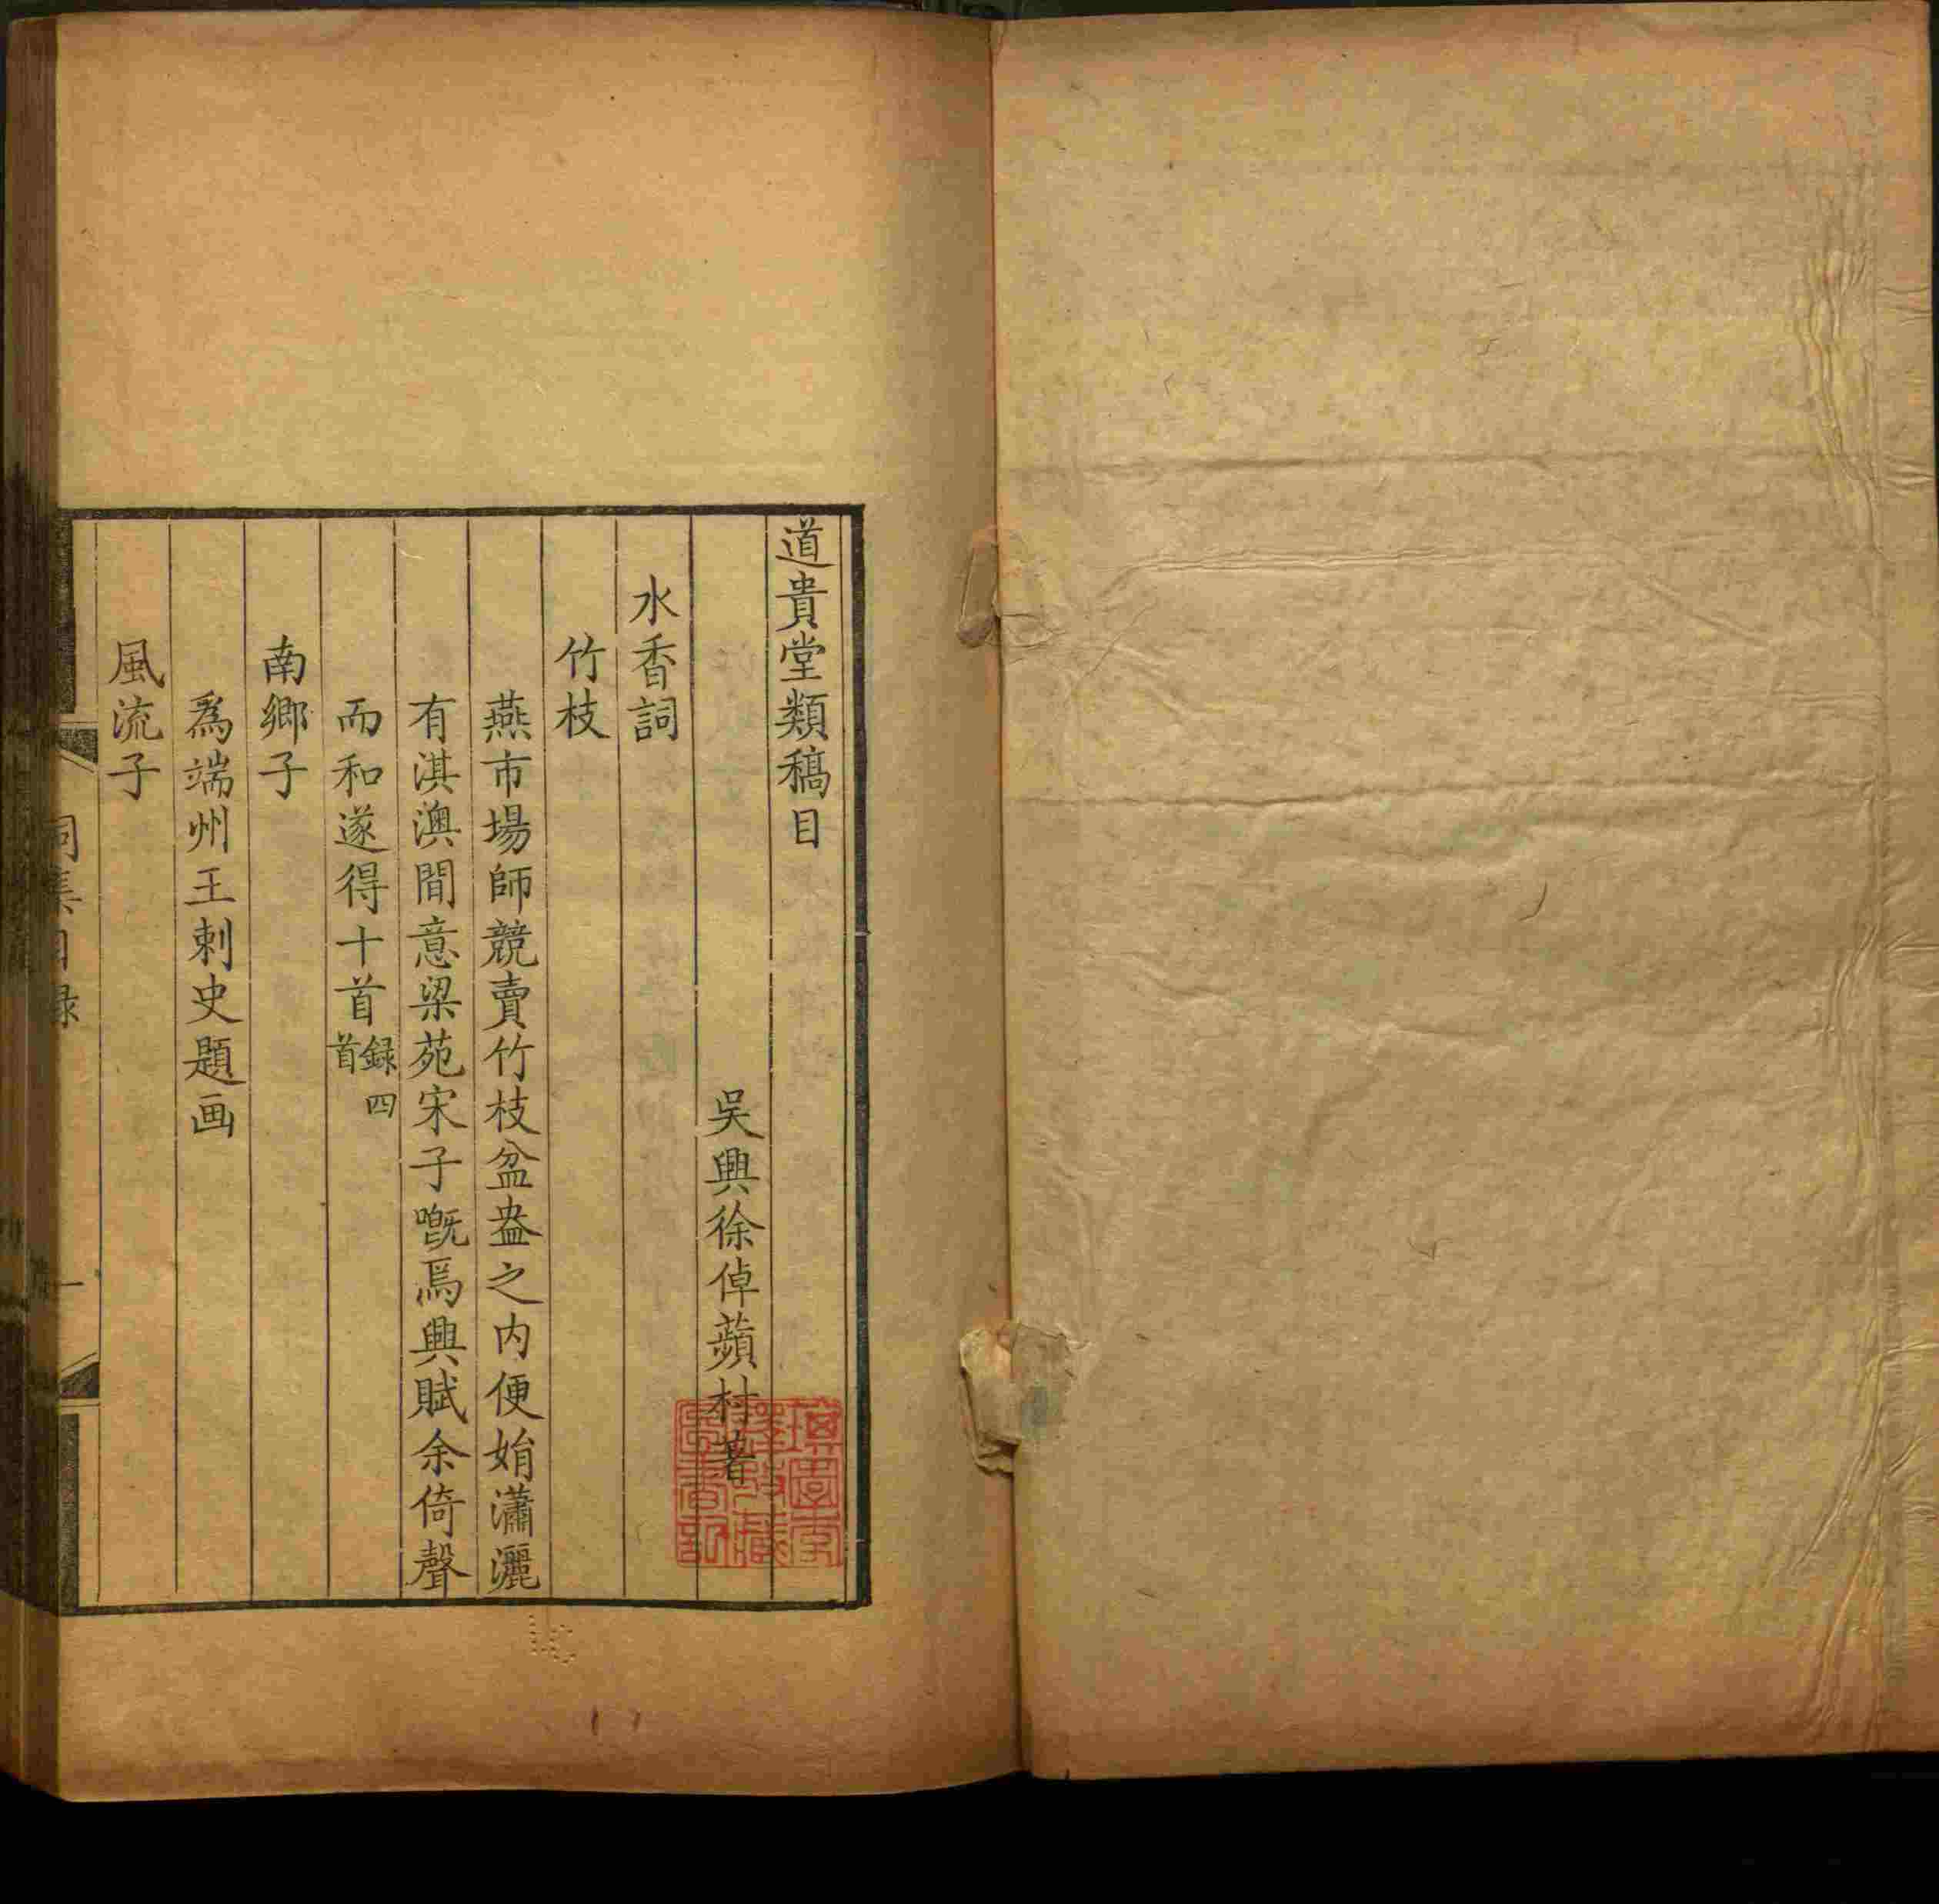 道貴堂類稿目
吳興徐倬蘋村著
水香詞
竹枝
燕市場師競賣竹枝盆盎之內便娟瀟灑
有淇澳間意梁苑宋子嘅焉興賦余倚聲
而和遂得十首錄四首
南鄉子
為端州王刺史題画
風流子
詞集目錄
一